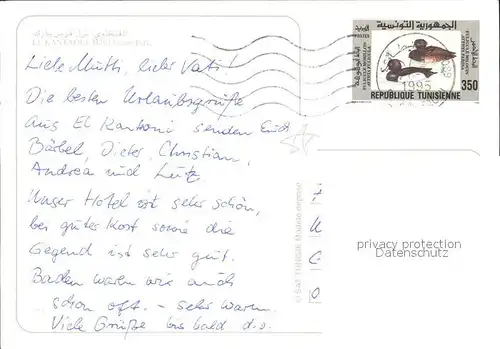 EL KANTAOUI
Liebe Mutti, lieber Vati!
Die besten Urlaubsgrüße
aus El Kantaoui senden Euch
Bärbel, Dieter, Christian,
Andrea und Lutz.
Unser Hotel ist sehr schön,
bei guter Kost sowie die
Gegend ist sehr gut.
Baden waren wir auch
schon oft. – sehr warm.
Viele Grüße bis bald d.o.
الجمهورية التونسية
1995
350
REPUBLIQUE TUNISIENNE
© SAT TUNISIE
privacy protection
Datenschutz